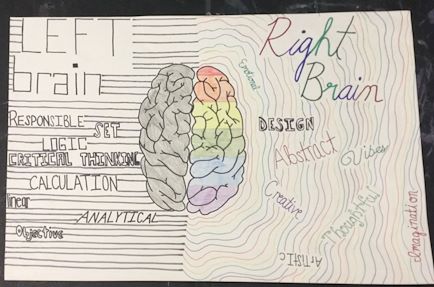 LEFT
brain
RESPONSIBLE
SET
LOGIC
CRITICAL THINKING
CALCULATION
linear
ANALYTICAL
Objective
Right
Brain
Emotional
DESIGN
Abstract
Vibes
Creative
Thoughtful
Imagination
ArtistIc